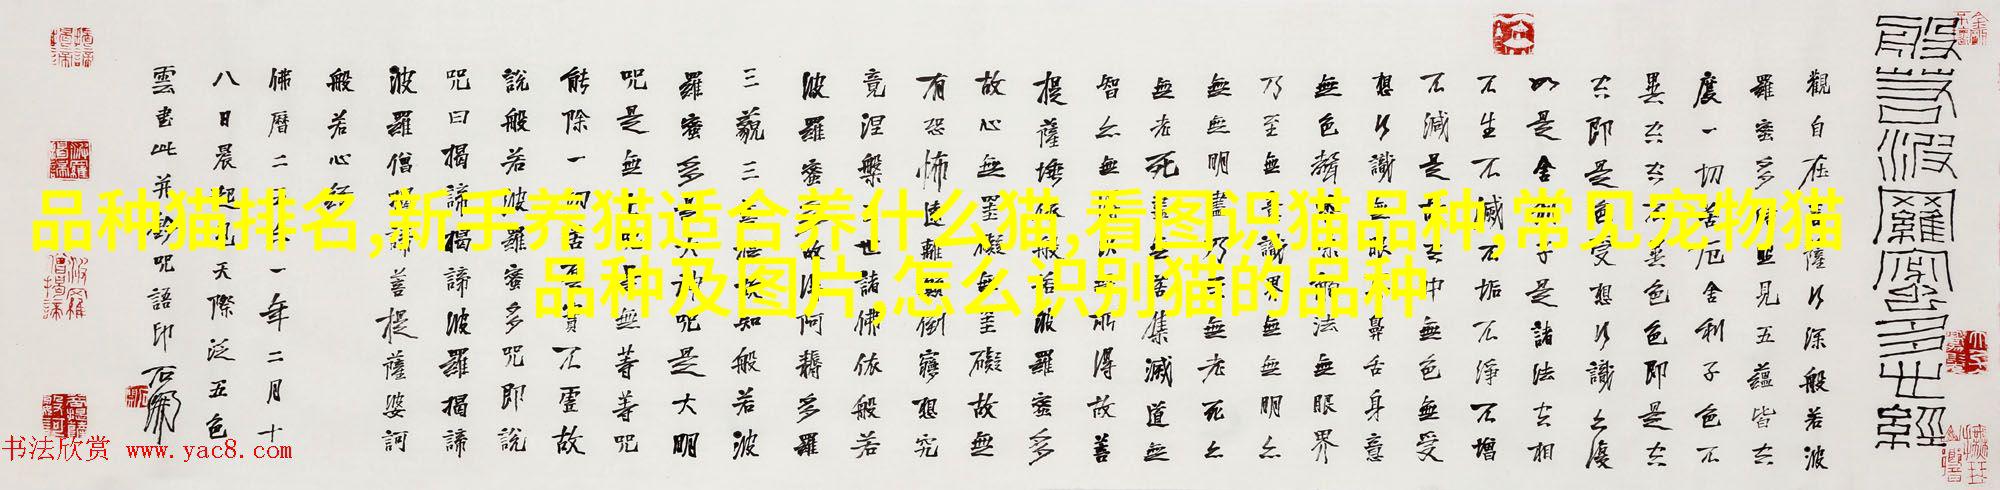 般若波羅蜜多心經
觀自在菩薩行深般若波
羅蜜多時照見五蘊皆空
度一切苦厄舍利子色不
異空空不異色色即是空
空即是色受想行識亦復
如是舍利子是諸法空相
不生不滅不垢不淨不增
不減是故空中無色無受
想行識無眼耳鼻舌身意
無色聲香味觸法無眼界
乃至無意識界無無明亦
無無明盡乃至無老死亦
無老死盡無苦集滅道無
智亦無得以無所得故菩
提薩埵依般若波羅蜜多
故心無罣礙無罣礙故無
有恐怖遠離顛倒夢想究
竟涅槃三世諸佛依般若
波羅蜜多故得阿耨多羅
三藐三菩提故知般若波
羅蜜多是大神咒是大明
咒是無上咒是無等等咒
能除一切苦真實不虛故
說般若波羅蜜多咒即說
咒曰揭諦揭諦波羅揭諦
波羅僧揭諦菩提薩婆訶
般若心經
佛曆二五一年二月十
八日晨起見天際泛五色
雲書此并鈐咒語印
品种猫排名,新手养猫适合养什么猫,看图识猫品种,常见宠物猫
品种及图片,怎么识别猫的品种
书法欣赏 www.yac8.com